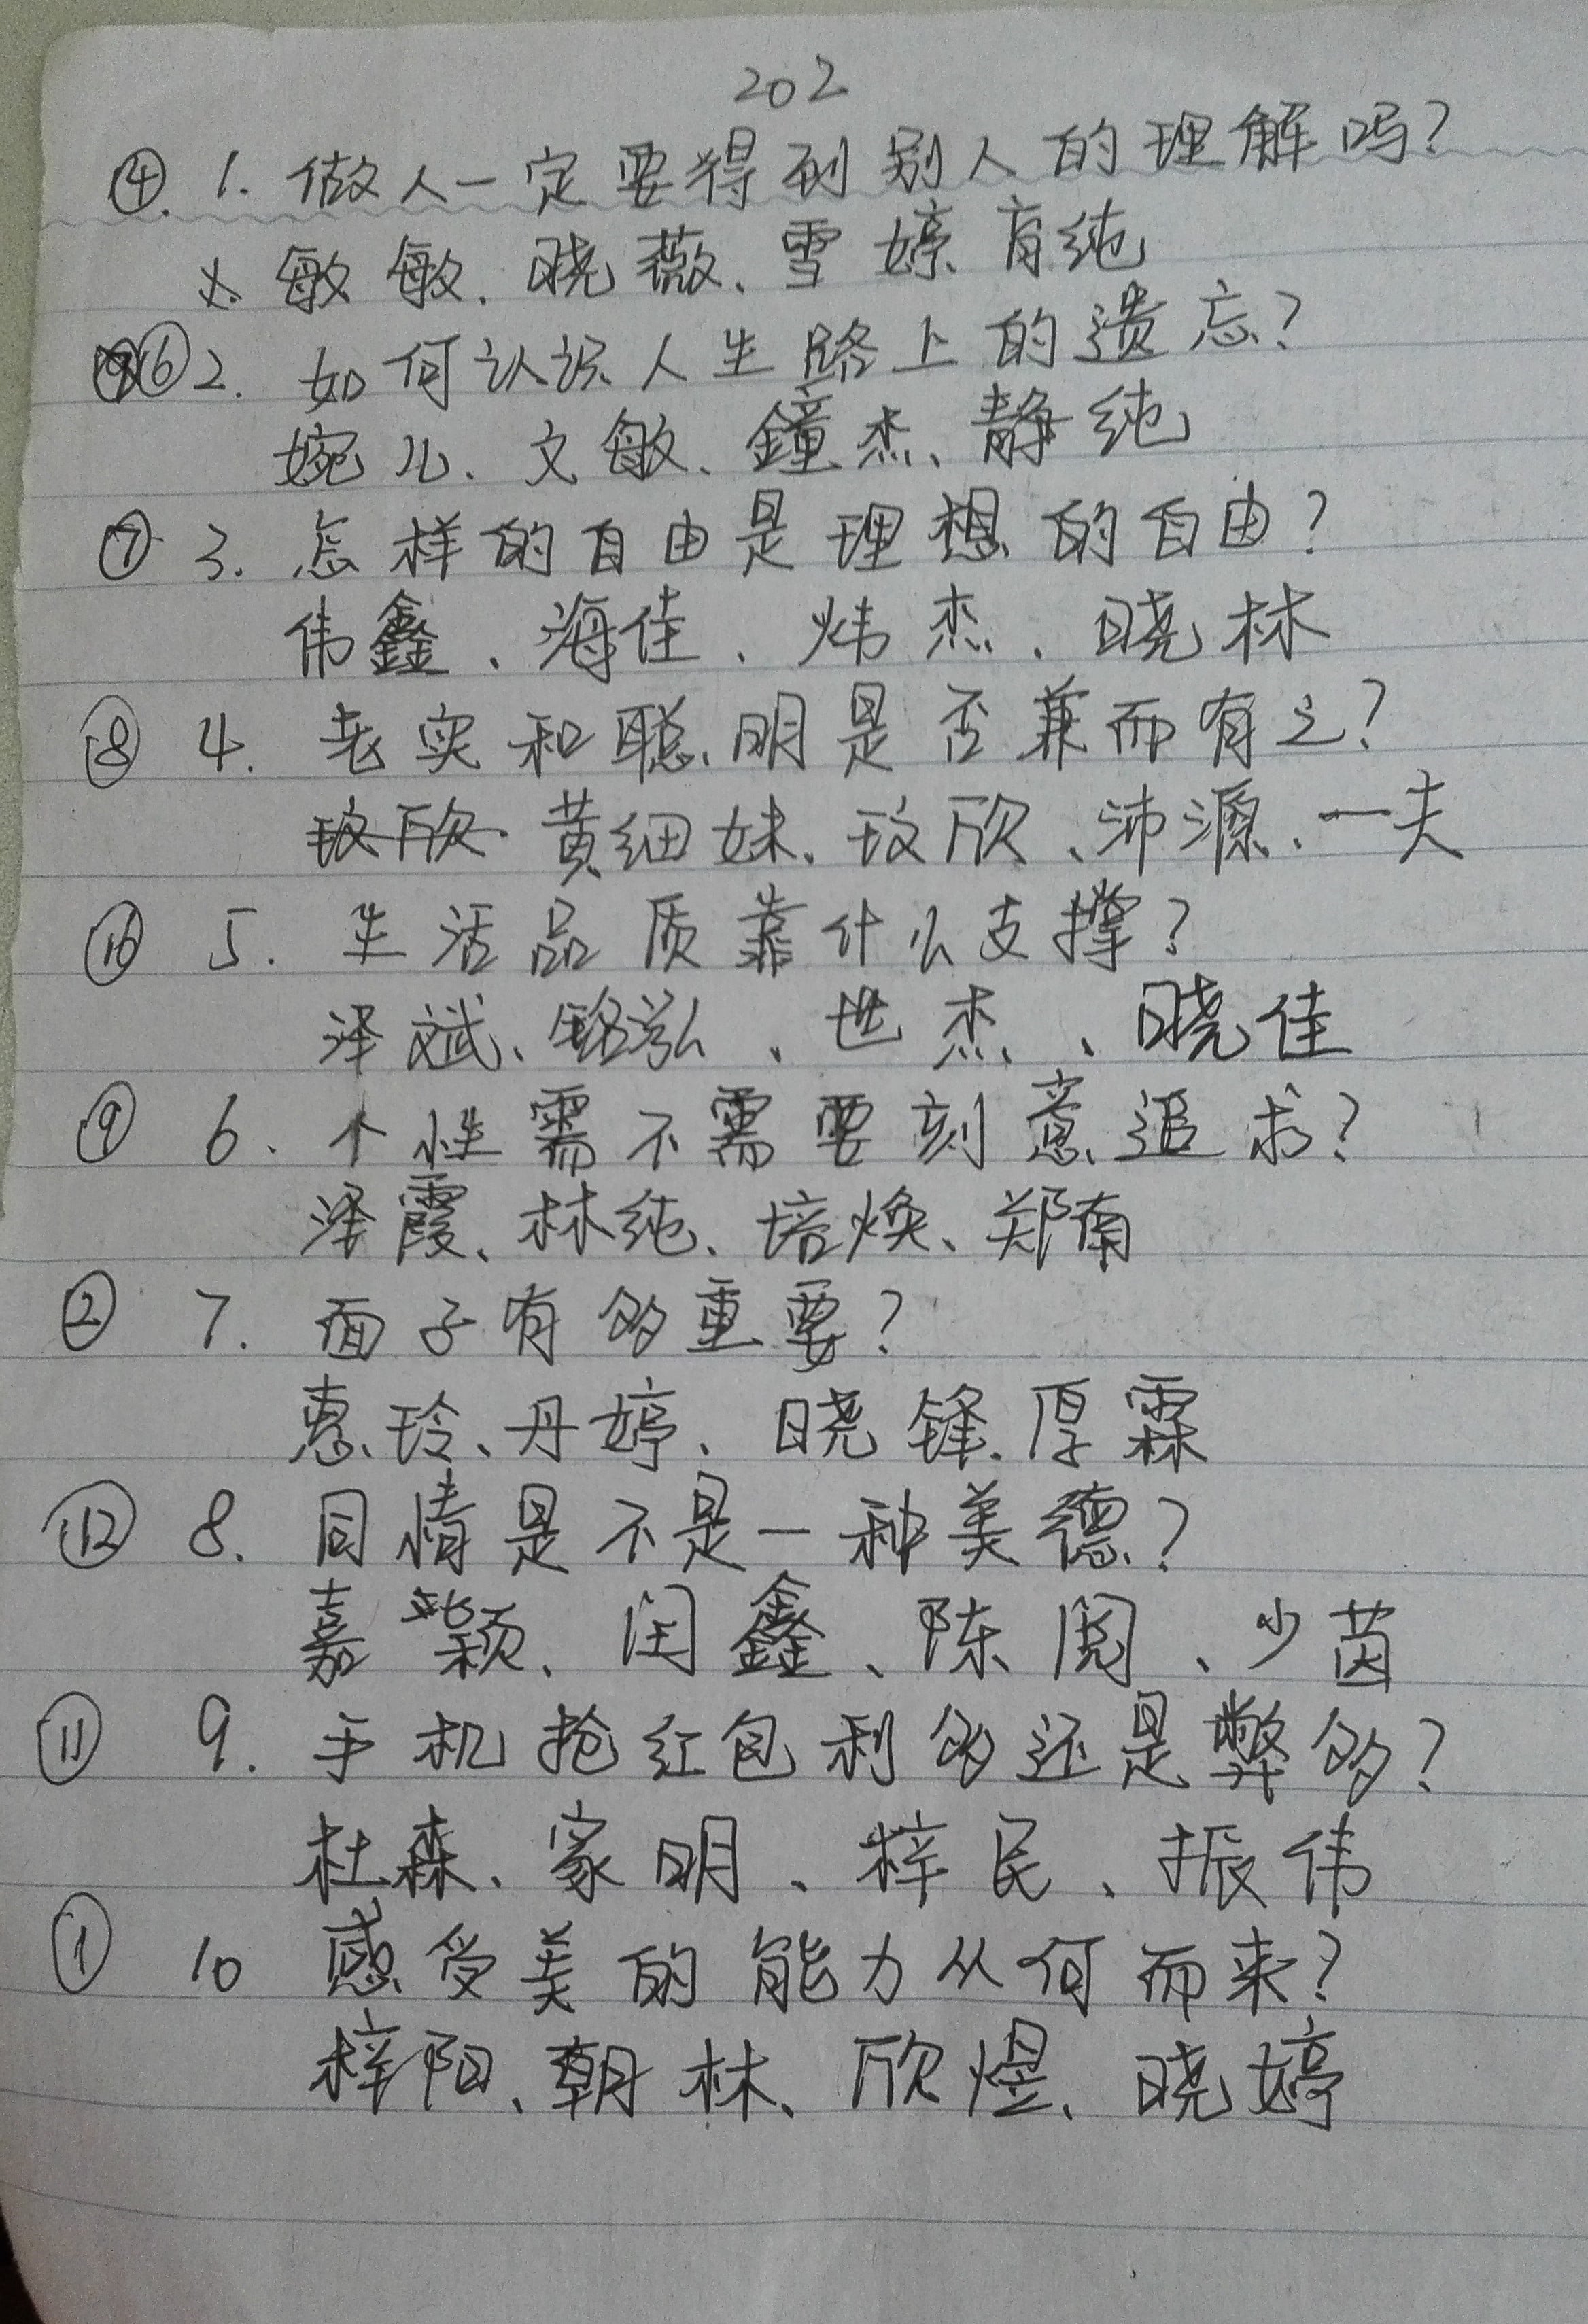 202
④ 1. 做人一定要得到别人的理解吗?
敏敏、晓薇、雪婷、育纯
⑥ 2. 如何认识人生路上的遗忘?
婉儿、文敏、鐘杰、静纯
⑦ 3. 怎样的自由是理想的自由?
伟鑫、海佳、炜杰、晓林
⑧ 4. 老实和聪明是否兼而有之?
玫欣 黄细妹、玫欣、沛源、一夫
⑯ 5. 生活品质靠什么支撑?
泽斌、铭泓、世杰、晓佳
⑨ 6. 个性需不需要刻意追求?
泽霞、林纯、培焕、郑南
② 7. 面子有多重要?
惠玲、丹婷、晓锋、厚霖
⑫ 8. 同情是不是一种美德?
嘉颖、闰鑫、陈阅、少茵
⑪ 9. 手机抢红包利多还是弊多?
杜森、家明、梓民、振伟
① 10 感受美的能力从何而来?
梓阳、朝林、欣煜、晓婷